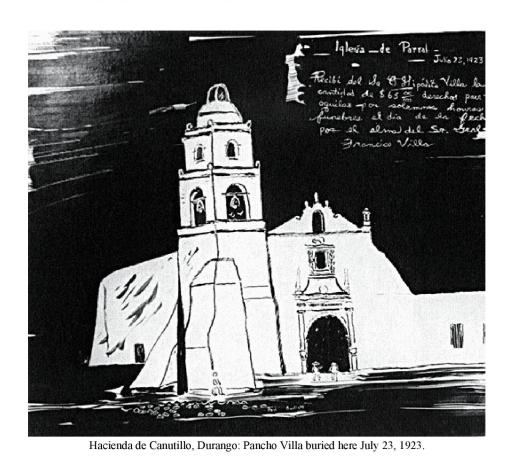 Iglesia de Parral
Julio 23, 1923
Recibi del Sr Hipólito Villa la
cantidad de $63 derechos parr
oquiles por solemnes honras
funebres el dia de la fech
por el alma del Sr. Gral
Francisco Villa
Hacienda de Canutillo, Durango: Pancho Villa buried here July 23, 1923.